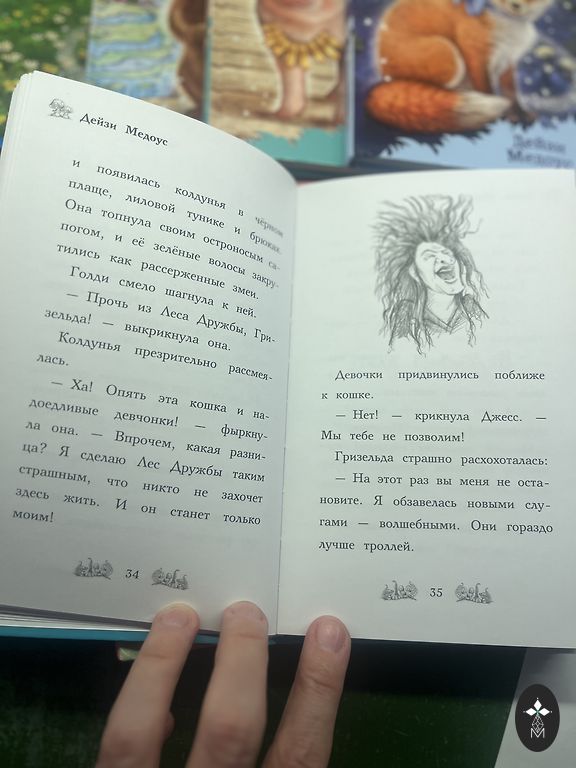 Дейзи
Медоус
Дейзи Медоус
и появилась колдунья в чёрном
плаще, лиловой тунике и брюках.
Она топнула своим остроносым са-
погом, и её зелёные волосы закру-
тились как рассерженные змеи.
Голди смело шагнула к ней.
— Прочь из Леса Дружбы, Гри-
зельда! — выкрикнула она.
Колдунья презрительно рассмея-
лась.
— Ха! Опять эта кошка и на-
доедливые девчонки! — фыркну-
ла она. — Впрочем, какая разни-
ца? Я сделаю Лес Дружбы таким
страшным, что никто не захочет
здесь жить. И он станет только
моим!
34
Девочки придвинулись поближе
к кошке.
— Нет! — крикнула Джесс. —
Мы тебе не позволим!
Гризельда страшно расхохоталась:
— На этот раз вы меня не оста-
новите. Я обзавелась новыми слу-
гами — волшебными. Они гораздо
лучше троллей.
35
M